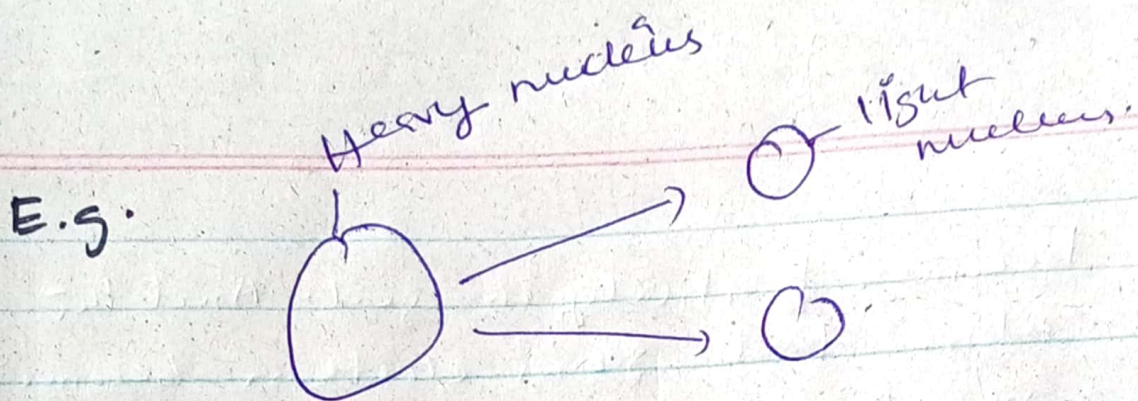 Heavy nucleus
light
nucleus.
E.g.